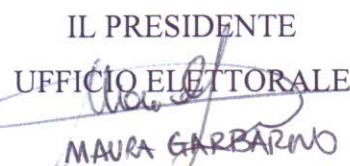 IL PRESIDENTE
UFFICIO ELETTORALE
MAURA GARBARINO